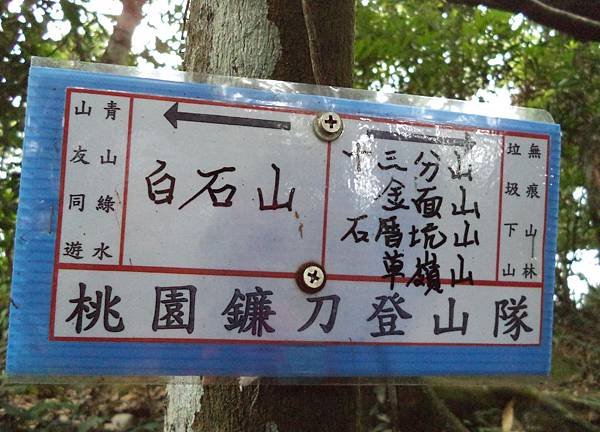 青山綠水
山友同遊
白石山
十三分山
金面山
石厝坑山
草嶺山
無痕山林
垃圾下山
桃園鐮刀登山隊